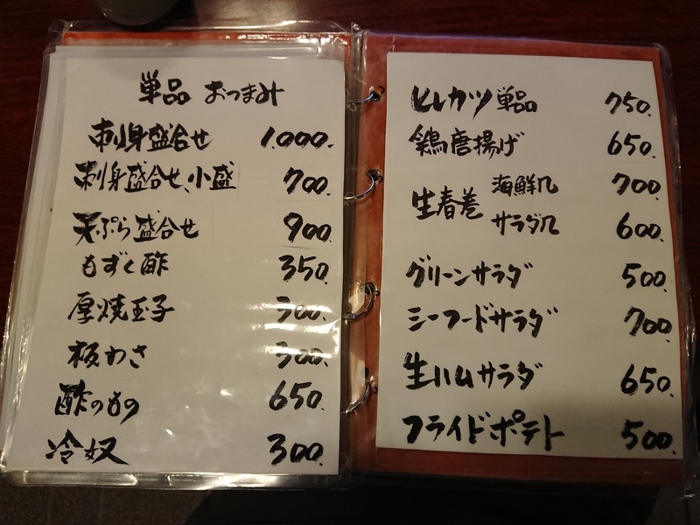 単品 おつまみ
刺身盛合せ 1,000.
刺身盛合せ、小盛 700.
天ぷら盛合せ 900.
もずく酢 350.
厚焼玉子 300.
板わさ 300.
酢のもの 650.
冷奴 300.
ヒレカツ単品 750.
鶏唐揚げ 650.
生春巻 海鮮 700.
サラダ 600.
グリーンサラダ 500.
シーフードサラダ 700.
生ハムサラダ 650.
フライドポテト 500.